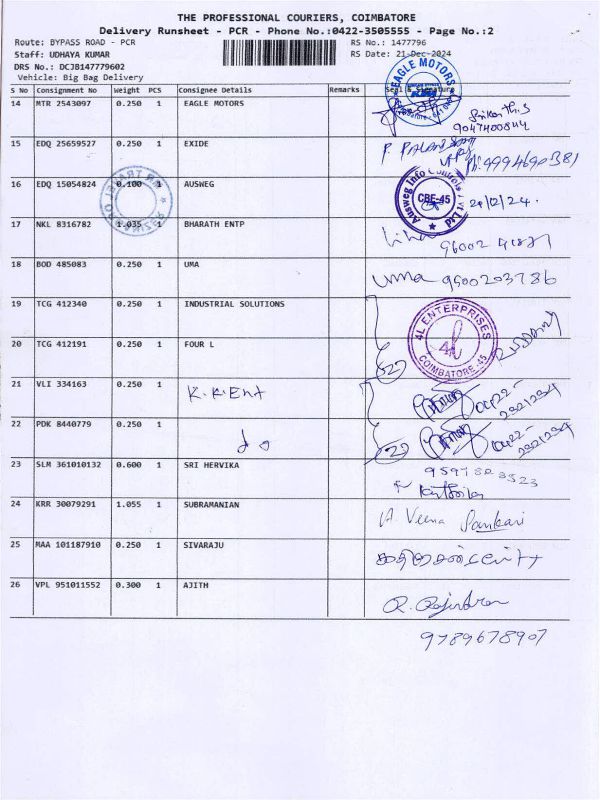 THE PROFESSIONAL COURIERS, COIMBATORE
Delivery Runsheet - PCR - Phone No.:0422-3505555 - Page No.:2
Route: BYPASS ROAD - PCR
RS No.: 1477796
Staff: UDHAYA KUMAR
RS Date: 21-Dec-2024
DRS No.: DCJB147779602
Vehicle: Big Bag Delivery
S No Consignment No Weight PCS Consignee Details Remarks Seal & Signature
14 MTR 2543097 0.250 1 EAGLE MOTORS
EAGLE MOTORS
Srikanth.S
9047400844
15 EDQ 25659527 0.250 1 EXIDE
16 EDQ 15054824 0.100 1 AUSWEG
Ausweg Info Controls
CBE-45
17 NKL 8316782 1.035 1 BHARATH ENTP
18 BOD 485083 0.250 1 UMA
uma 9500203786
19 TCG 412340 0.250 1 INDUSTRIAL SOLUTIONS
4L ENTERPRISES
4L
COIMBATORE-45
20 TCG 412191 0.250 1 FOUR L
21 VLI 334163 0.250 1 K.K.Ent
22 PDK 8440779 0.250 1 do
23 SLM 361010132 0.600 1 SRI HERVIKA
24 KRR 30079291 1.055 1 SUBRAMANIAN
A. Veena Sankari
25 MAA 101187910 0.250 1 SIVARAJU
26 VPL 951011552 0.300 1 AJITH
9789678907